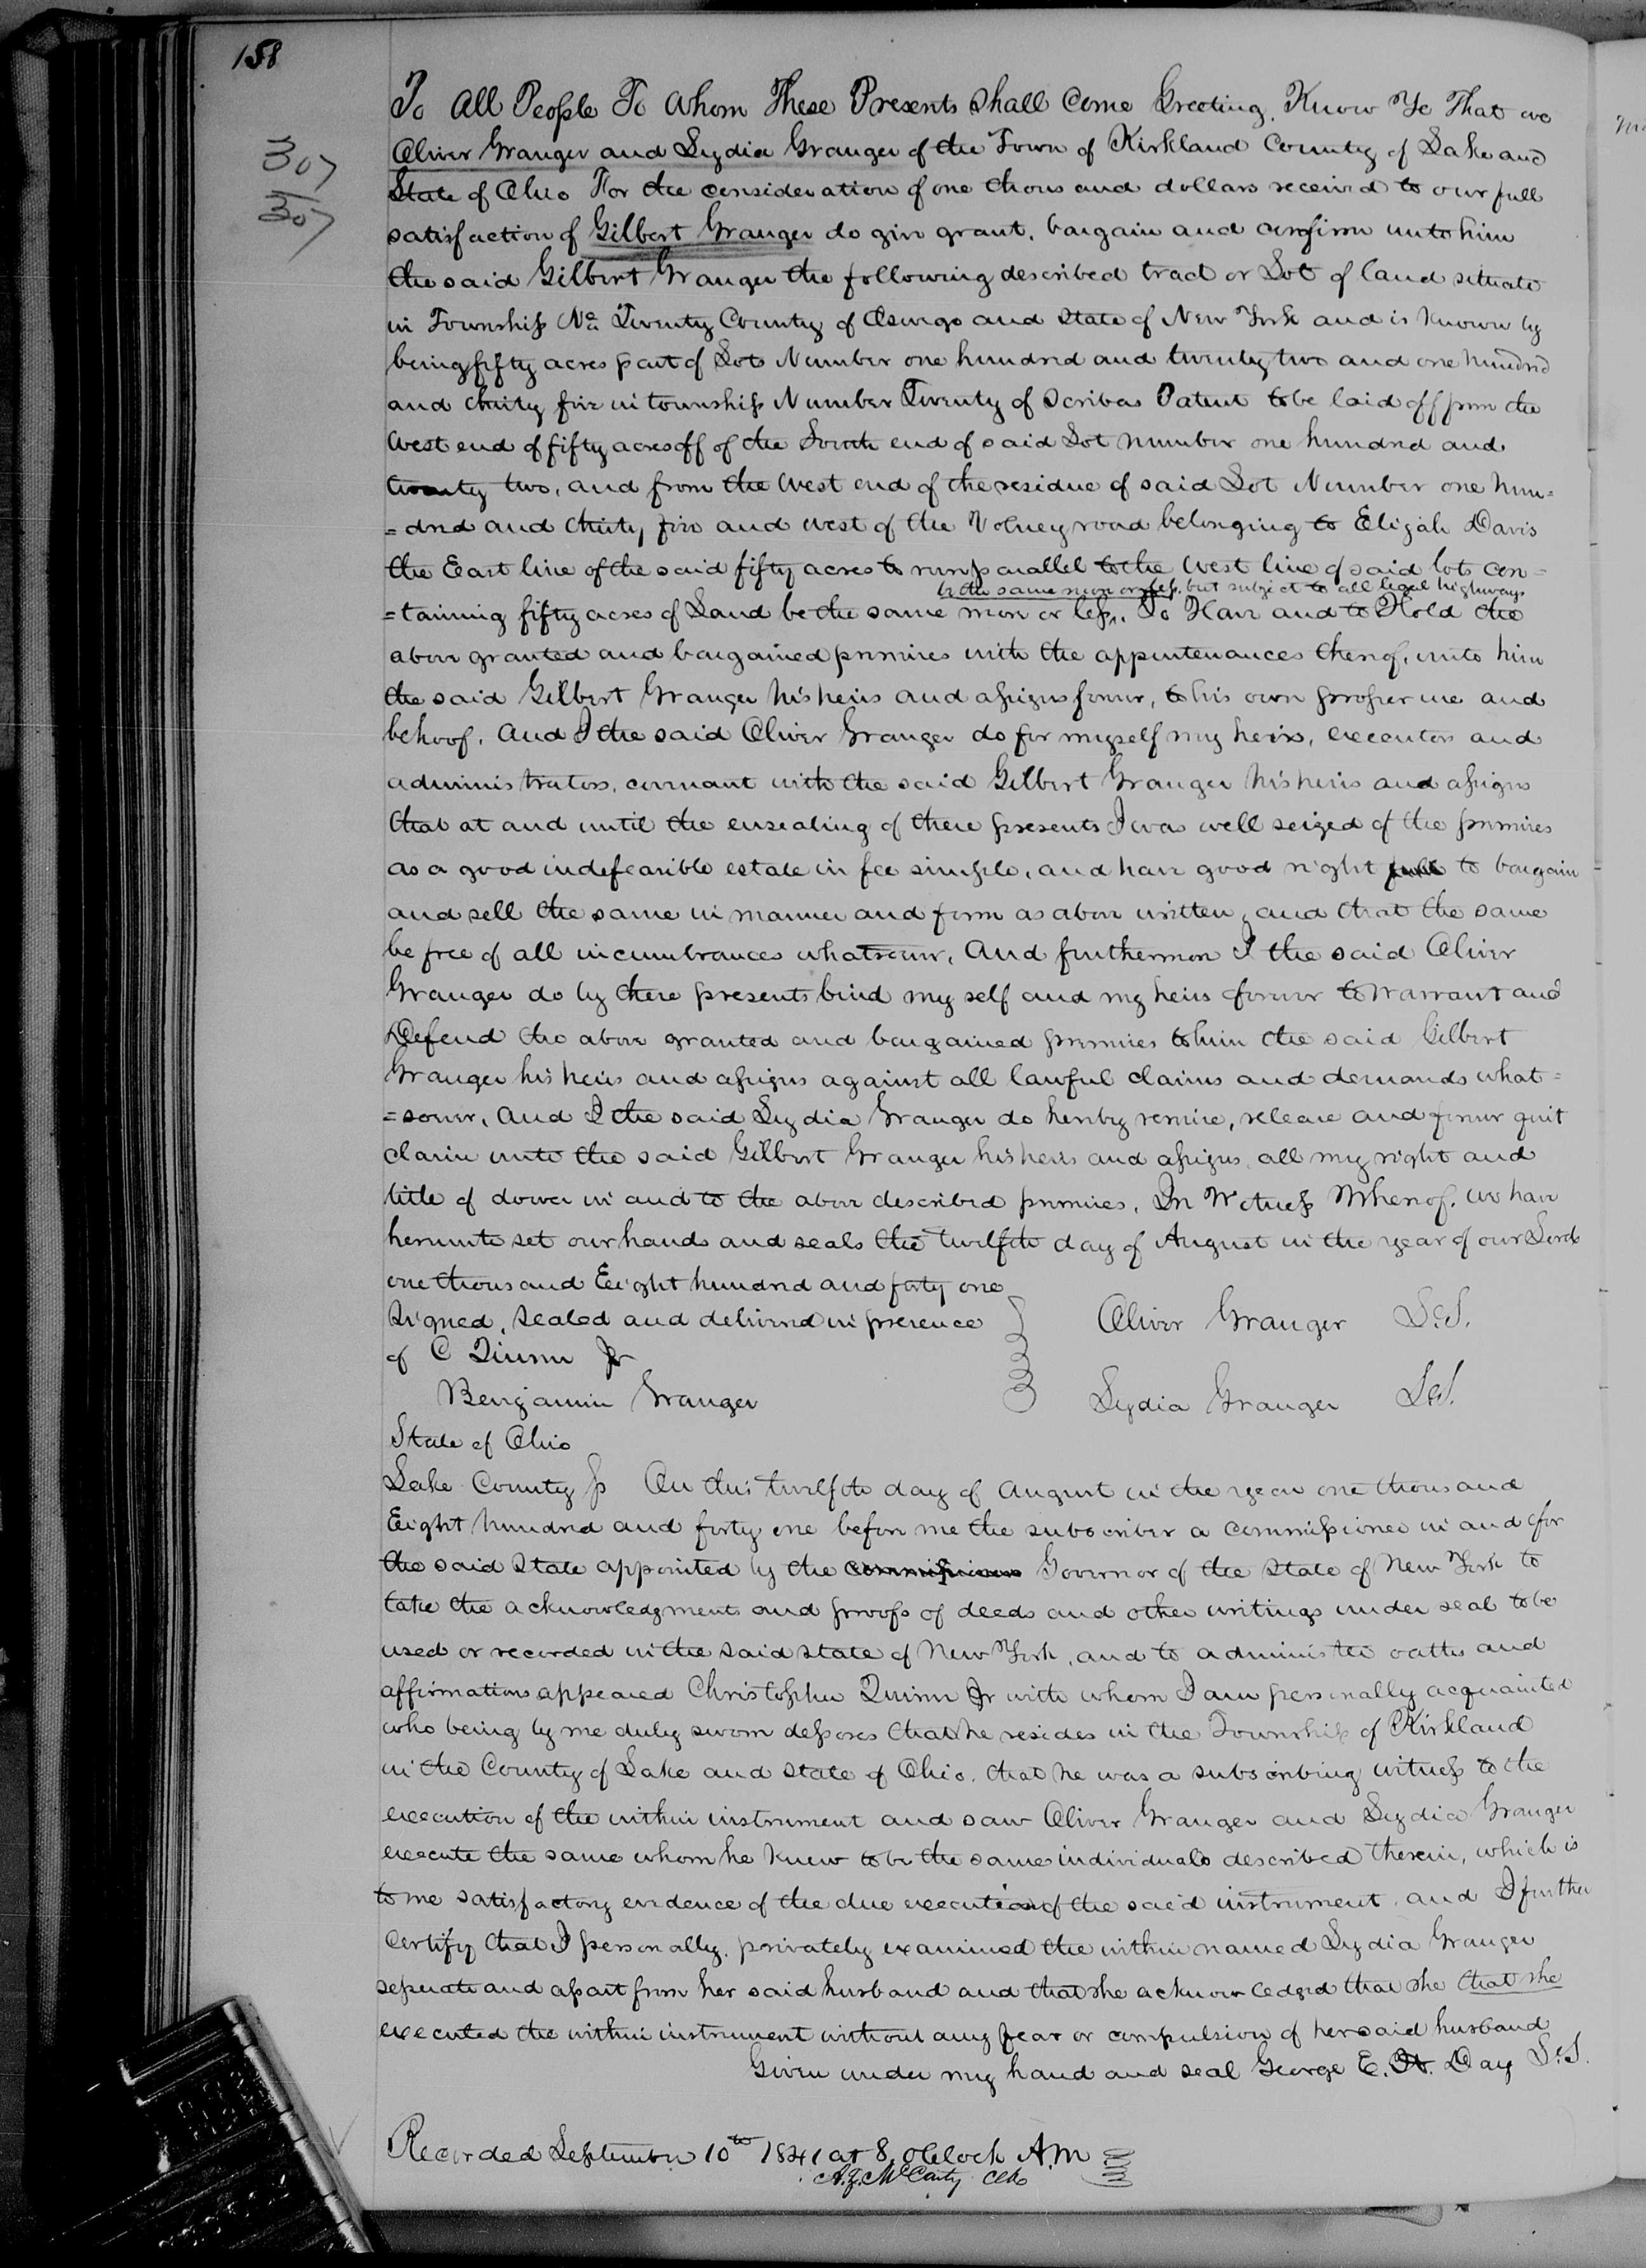 158
307
307
To All People To Whom These Presents Shall Come Greeting, Know Ye That we
Oliver Granger and Lydia Granger of the Town of Kirkland County of Lake and
State of Ohio For the consideration of one thousand dollars received to our full
satisfaction of Gilbert Granger do give grant, bargain and confirm unto him
the said Gilbert Granger the following described tract or Lot of land situate
in Township No. Twenty County of Oswego and State of New York and is known by
being fifty acres part of Lots Number one hundred and twenty two and one hundred
and thirty five in township Number Twenty of Scribas Patent to be laid off from the
West end of fifty acres off of the South end of said Lot number one hundred and
twenty two, and from the West end of the residue of said Lot Number one hun=
=dred and thirty five and west of the Volney road belonging to Elijah Davis
the East line of the said fifty acres to run parallel to the West line of said lots con=
be the same more or less, but subject to all legal highways
=taining fifty acres of Land be the same more or less. To Have and to Hold the
above granted and bargained premises with the appurtenances thereof, unto him
the said Gilbert Granger his heirs and assigns forever, to his own proper use and
behoof. And I the said Oliver Granger do for myself my heirs, executors and
administrators, covenant with the said Gilbert Granger his heirs and assigns
that at and until the ensealing of these presents I was well seized of the premises
as a good indefeasible estate in fee simple, and have good right full to bargain
and sell the same in manner and form as above written, and that the same
be free of all incumbrances whatsoever. And furthermore I the said Oliver
Granger do by these presents bind my self and my heirs forever to Warrant and
Defend the above granted and bargained premises to him the said Gilbert
Granger his heirs and assigns against all lawful claims and demands what=
=soever. And I the said Lydia Granger do hereby remise, release and forever quit
claim unto the said Gilbert Granger his heirs and assigns, all my right and
title of dower in and to the above described premises. In Witness Whereof, we have
hereunto set our hands and seals the twelfth day of August in the year of our Lord
one thousand Eight hundred and forty one
Signed, Sealed and delivered in presence
of C Quinn Jr
Benjamin Granger
Oliver Granger L.S.
Lydia Granger L.S.
State of Ohio
Lake County ss On this twelfth day of August in the year one thousand
Eight hundred and forty one before me the subscriber a commissioner in and for
the said State appointed by the commissioner Governor of the State of New York to
take the acknowledgments and proofs of deeds and other writings under seal to be
used or recorded in the said State of New York, and to administer oaths and
affirmations appeared Christopher Quinn Jr with whom I am personally acquainted
who being by me duly sworn deposes that he resides in the Township of Kirkland
in the County of Lake and State of Ohio. that he was a subscribing witness to the
execution of the within instrument and saw Oliver Granger and Lydia Granger
execute the same whom he knew to be the same individuals described therein, which is
to me satisfactory evidence of the due execution of the said instrument. and I further
Certify that I personally, privately examined the within named Lydia Granger
seperate and apart from her said husband and that she acknowledged that she that she
executed the within instrument without any fear or compulsion of her said husband
Given under my hand and seal George E. H. Day L.S.
Recorded September 10th 1841 at 8, oClock A.M
A.Z. McCarty Clk